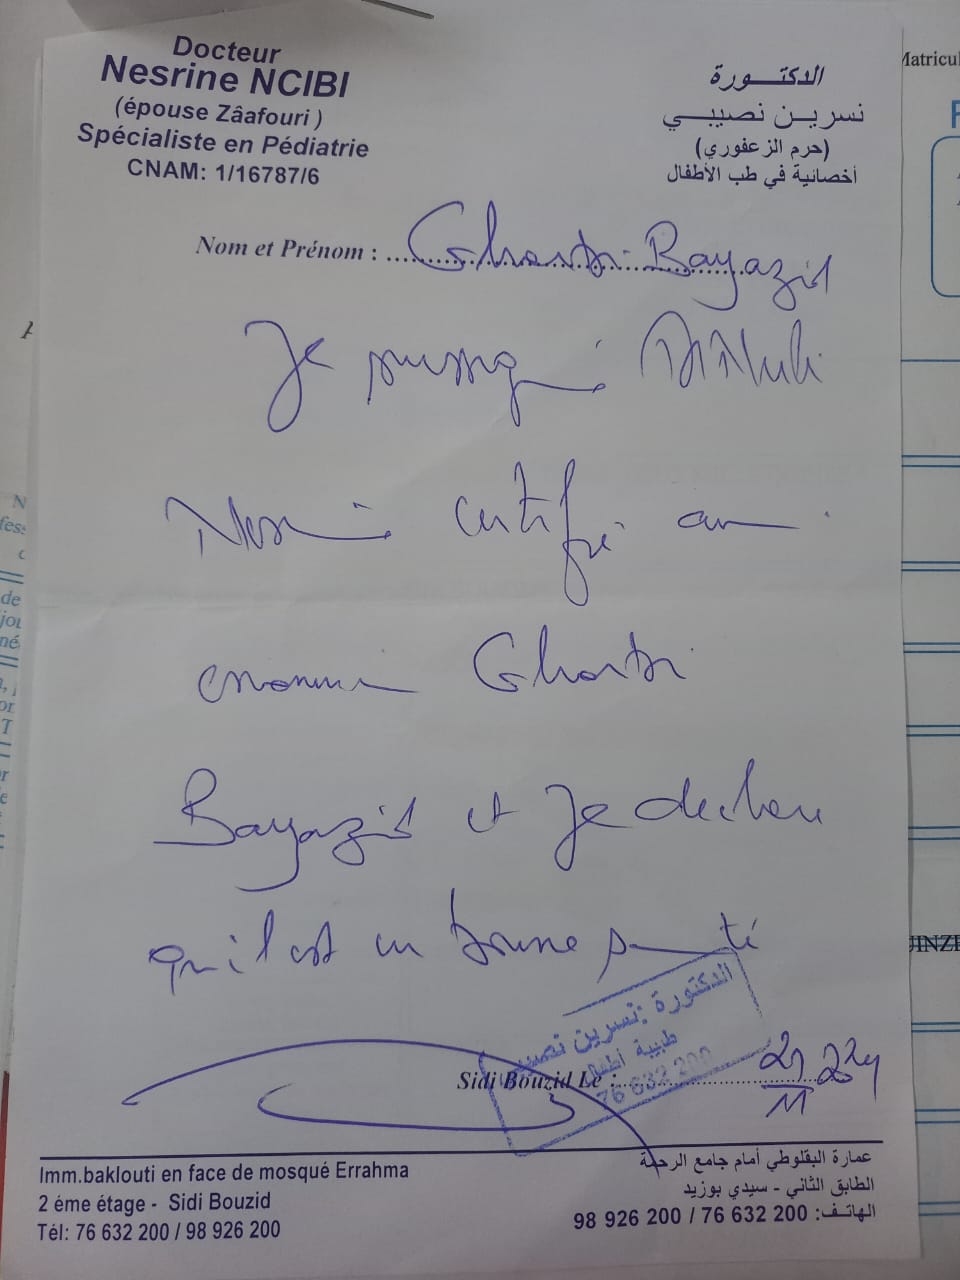 Docteur
Nesrine NCIBI
(épouse Zâafouri )
Spécialiste en Pédiatrie
CNAM: 1/16787/6
الدكتــورة
نسرين نصيبي
(حرم الزعفوري)
أخصائية في طب الأطفال
Nom et Prénom : Gharbi Bayazid
Je
certifié
Gharbi
Bayazid et Je
qu'il est en bonne santé
الدكتورة : نسرين نصيبي
طبيبة أطفال
76 632 200
Sidi Bouzid Le :
Imm.baklouti en face de mosqué Errahma
2 éme étage - Sidi Bouzid
Tél: 76 632 200 / 98 926 200
عمارة البقلوطي أمام جامع الرحمة
الطابق الثاني - سيدي بوزيد
الهاتف: 200 632 76 / 200 926 98
Matricul
fess
de
jou
né